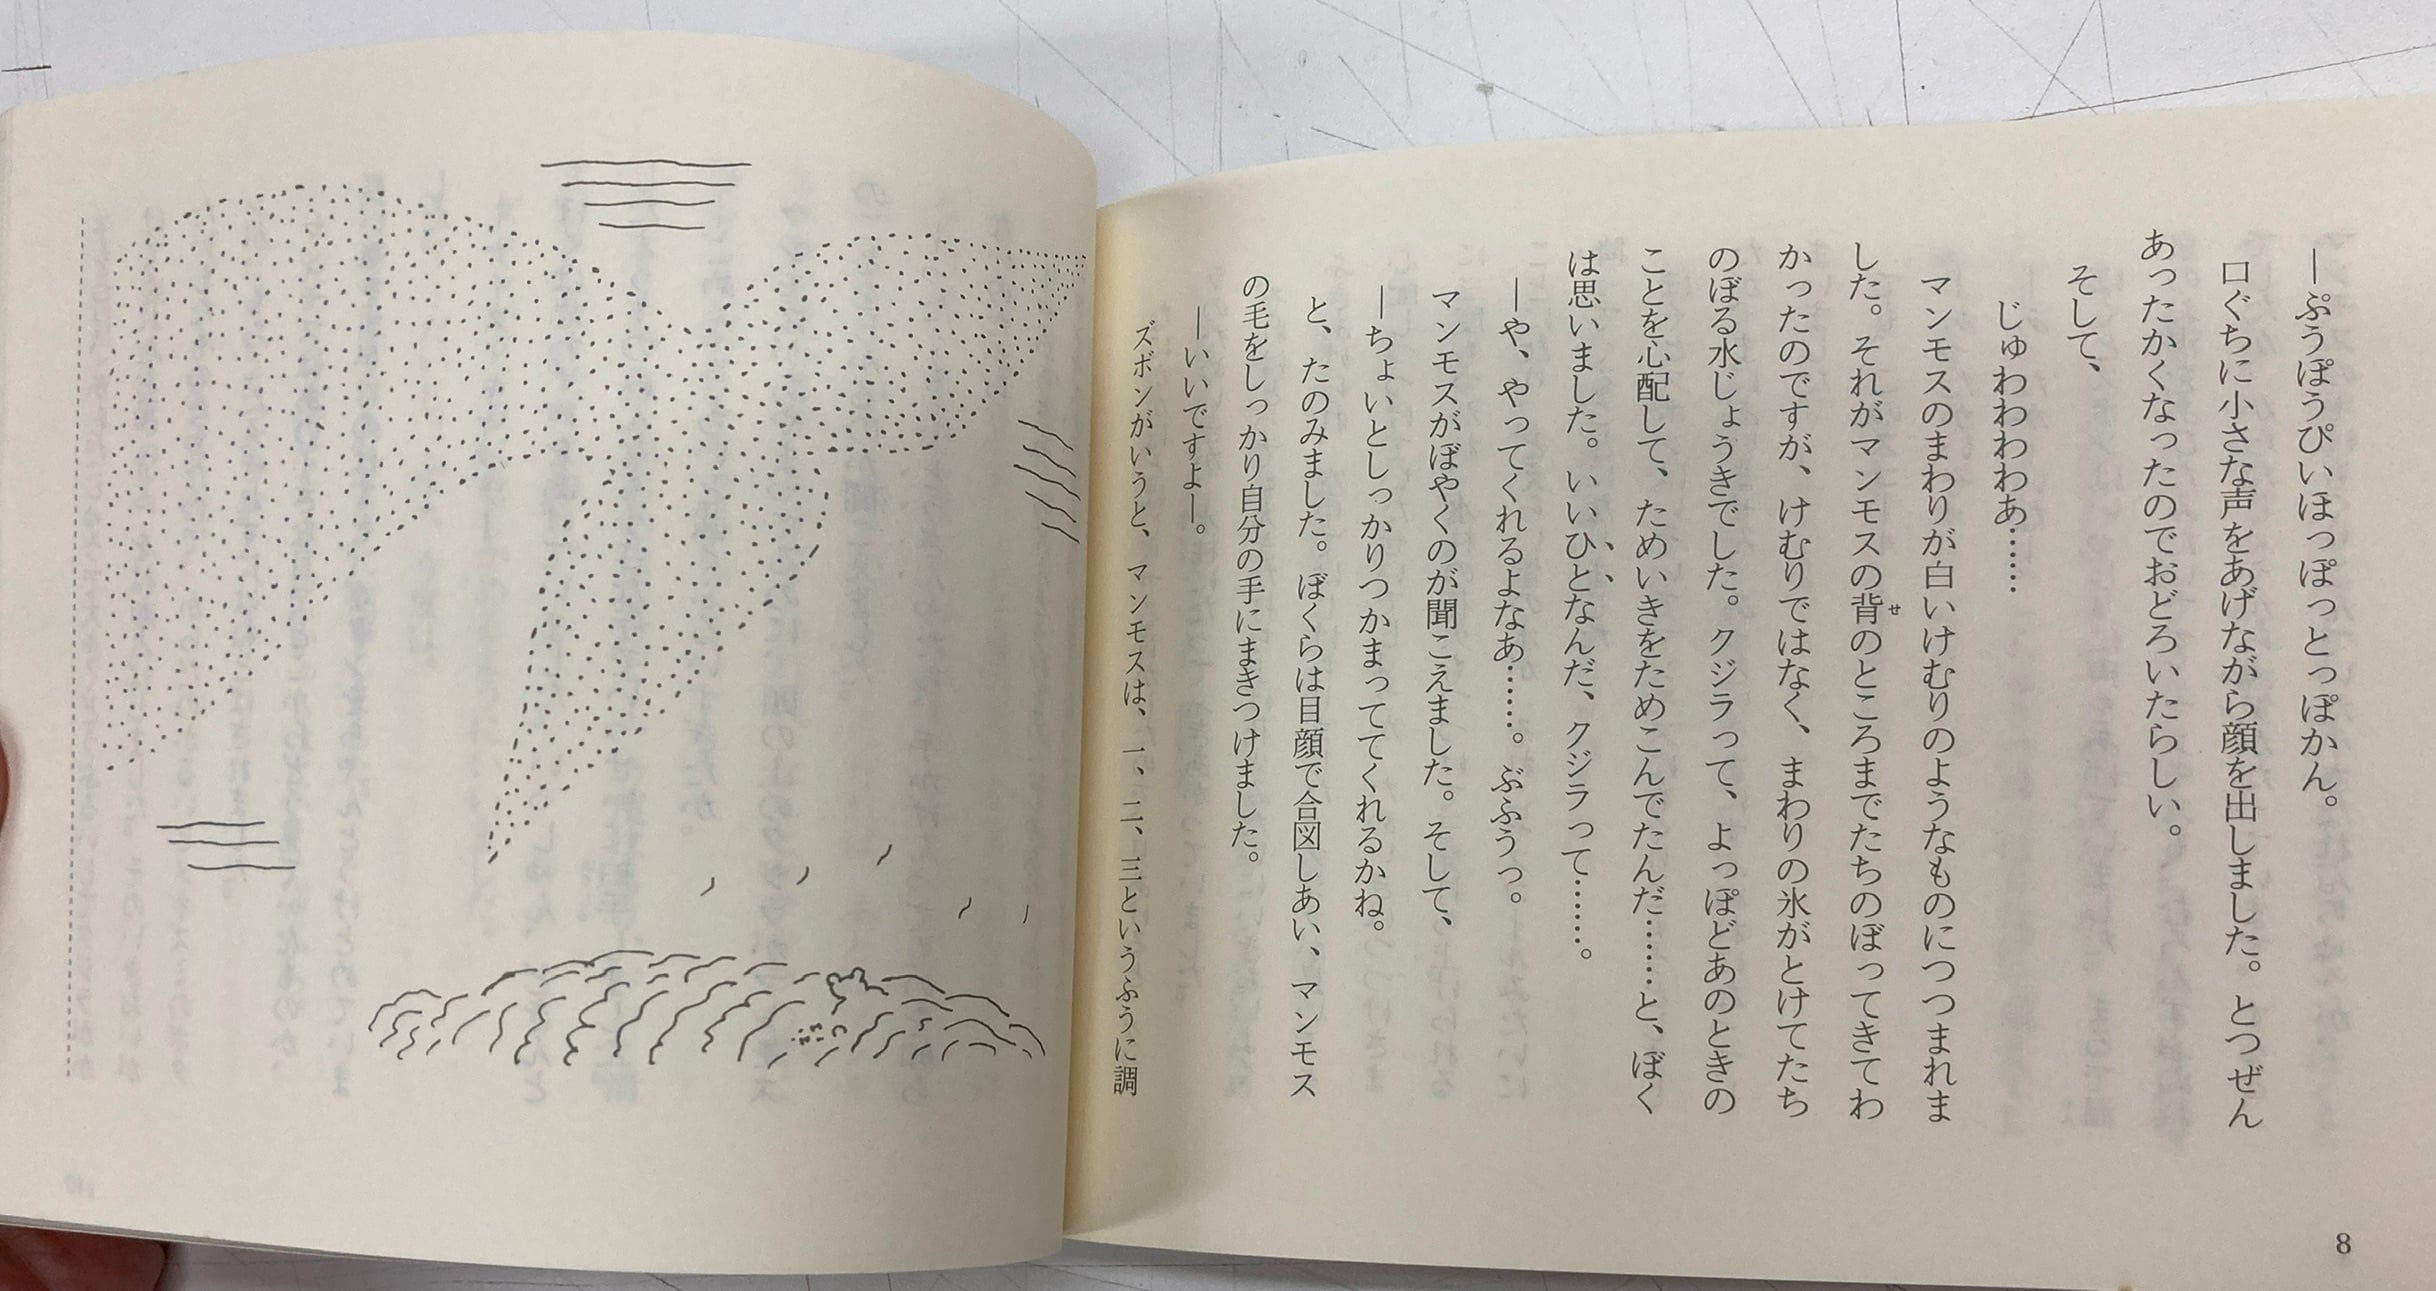 ―ぷうぽうぴいほっぽっとっぽかん。
口ぐちに小さな声をあげながら顔を出しました。とつぜん
あったかくなったのでおどろいたらしい。
そして、
じゅわわわわあ……
マンモスのまわりが白いけむりのようなものにつつまれま
した。それがマンモスの背せのところまでたちのぼってきてわ
かったのですが、けむりではなく、まわりの氷がとけてたち
のぼる水じょうきでした。クジラって、よっぽどあのときの
ことを心配して、ためいきをためこんでたんだ……と、ぼく
は思いました。いいひとなんだ、クジラって……。
―や、やってくれるよなあ……。ぶふうっ。
マンモスがぼやくのが聞こえました。そして、
―ちょいとしっかりつかまっててくれるかね。
と、たのみました。ぼくらは目顔で合図しあい、マンモス
の毛をしっかり自分の手にまきつけました。
―いいですよー。
ズボンがいうと、マンモスは、一、二、三というふうに調
8